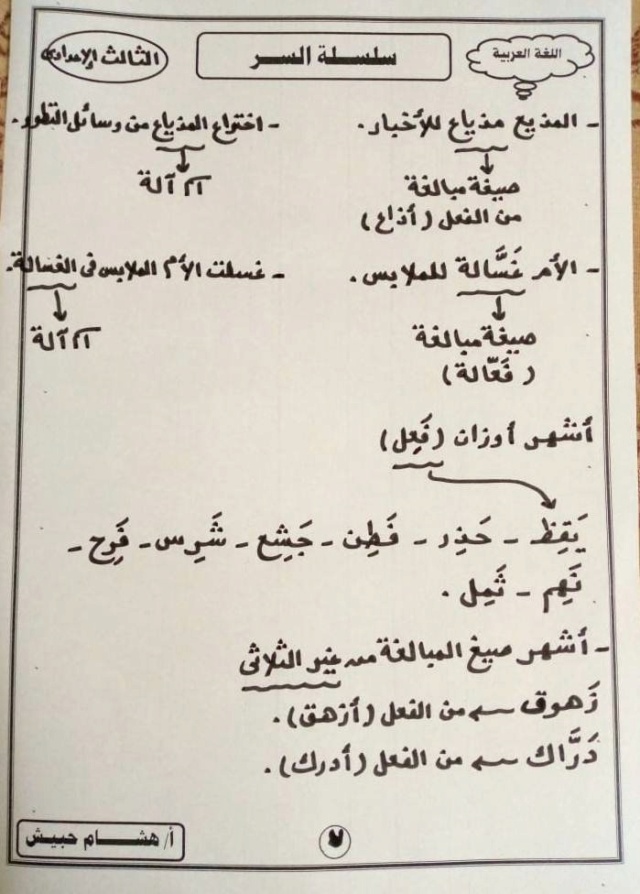 اللغة العربية
سلسلة السر
الثالث الإعدادى
- المذيع مذياع للأخبار.
- اختراع المذياع من وسائل التطور.
صيغة مبالغة
اسم آلة
من الفعل (أذاع)
- الأم غَسَّالة للملابس.
- غسلت الأم الملابس فى الغسالة.
صيغة مبالغة
اسم آلة
(فَعّالة)
أشهر أوزان (فَعِل)
يَقِظ - حَذِر - فَطِن - جَشِع - شَرِس - فَرِح -
نَهِم - ثَمِل .
- أشهر صيغ المبالغة من غير الثلاثى
زَهوق من الفعل (أزهق).
دَرَّاك من الفعل (أدرك).
أ/ هشام حبيش
٧